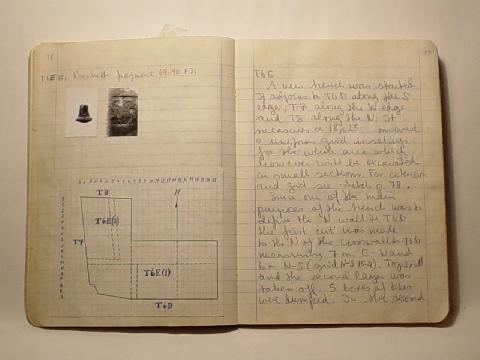 78
T6E Rochette fragment 69-90 P.31
T8
T6E(2)
T7
N
T6E(1)
T6D
79
T6E
A new trench was started
It adjoins to T6D along the S
edge, T7 along the W edge
and T8 along the N. It
measures ca 18 25 m and
a uniform grid is set up
for the whole area which
however will be excavated
in small sections. For extension
and grid see sketch p. 78.
Since one of the main
purposes of the trench was to
define the N wall in T6D
the first cut was made
to the N of the crosswall in T6D
measuring 7 m E-W and
6 m N-S (grid N-S 15-21). Topsoil
and the second layer was
taken off. 5 boxes of tiles
were dumped. In the second